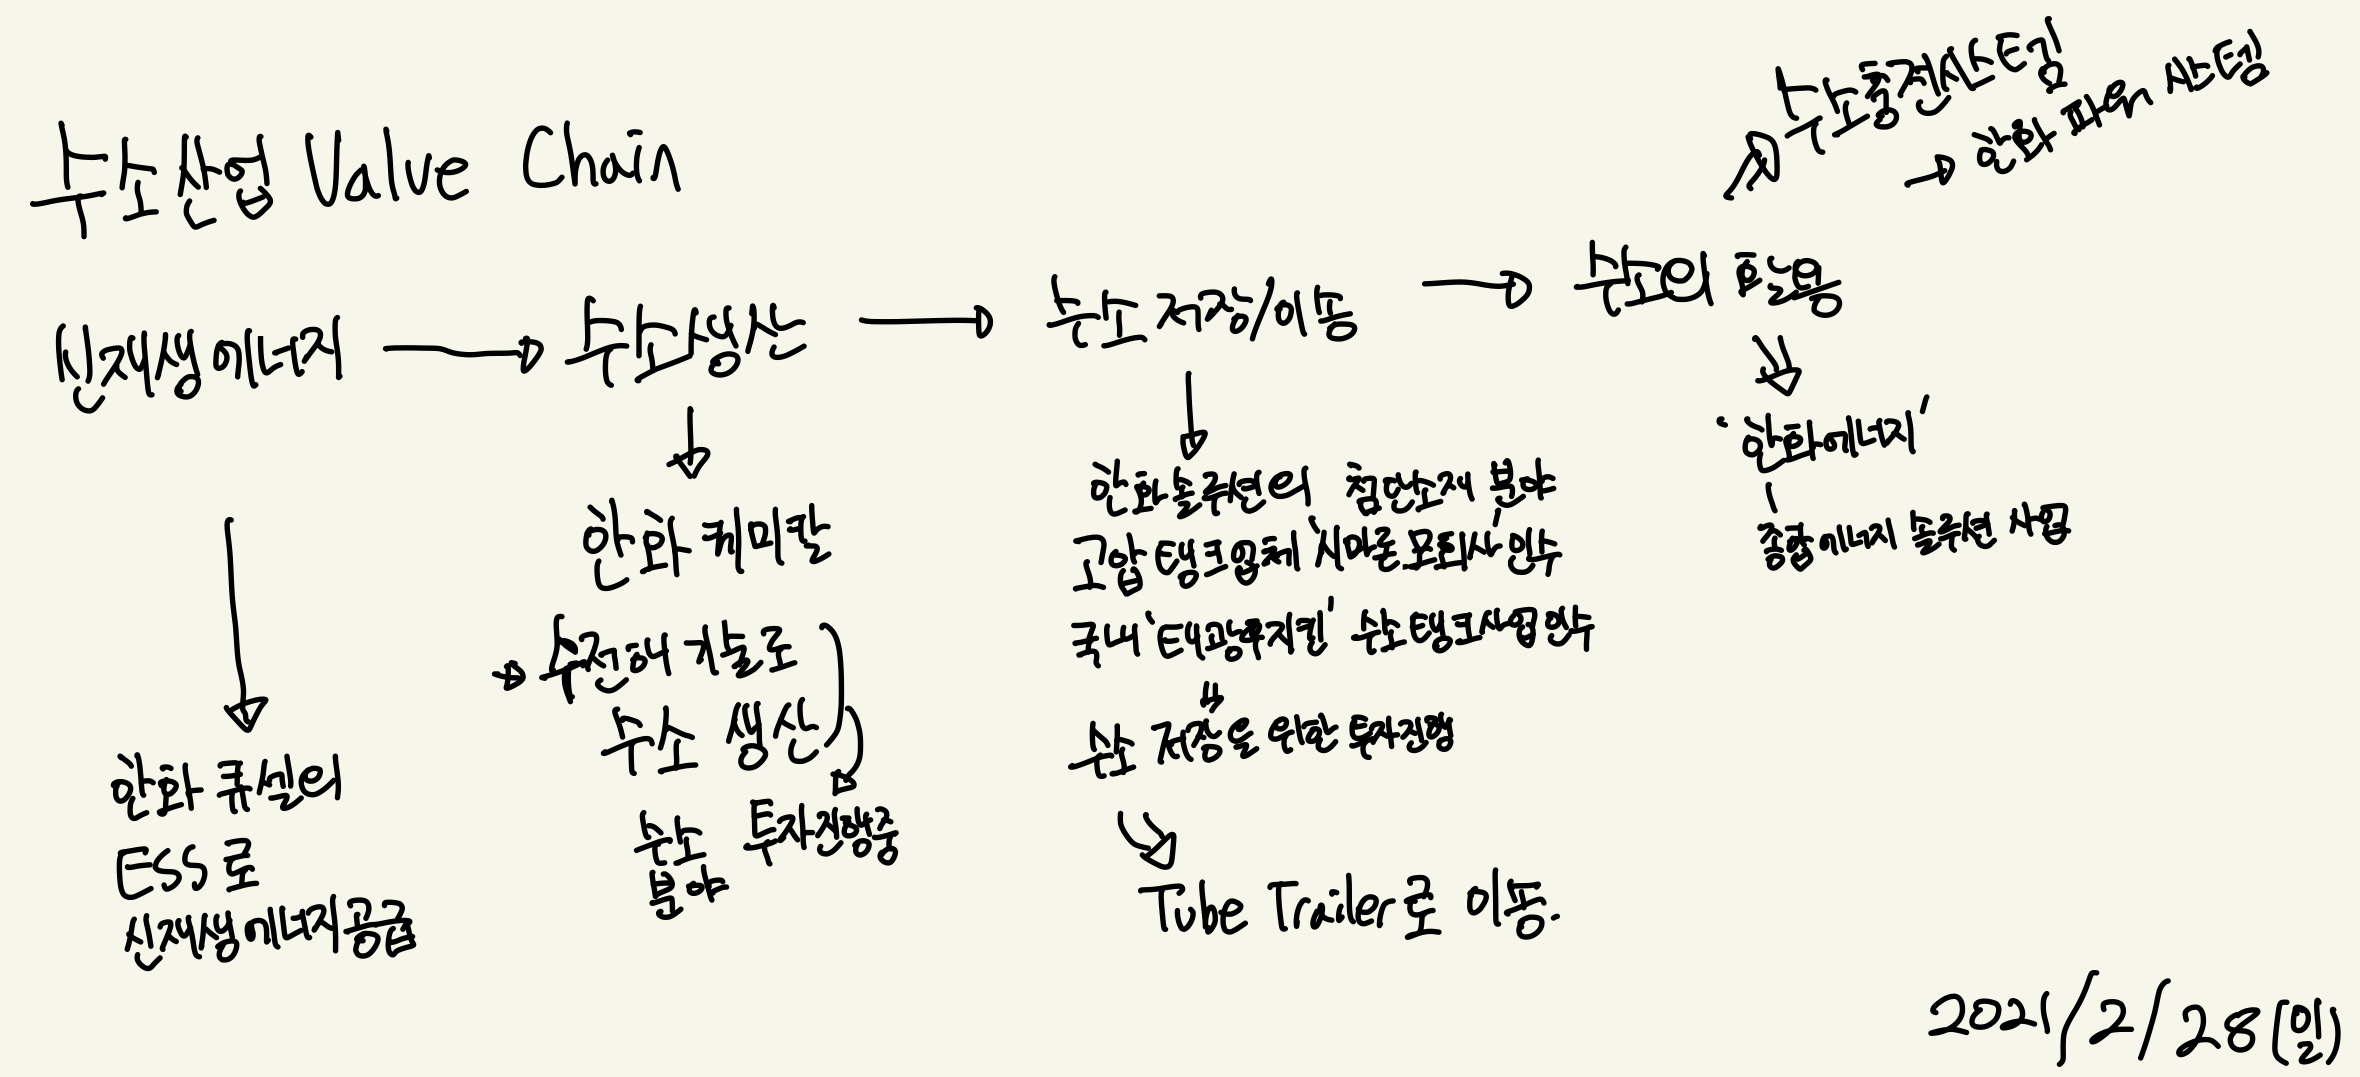 수소산업 Value Chain
신재생에너지
수소생산
수소 저장/이송
수소의 활용
수소충전시스템
한화 파워 시스템
한화 큐셀의
ESS로
신재생에너지공급
한화 케미칼
수전해 기술로
수소 생산
수소 투자진행중
분야
한화솔루션의 첨단소재 분야
고압 탱크업체 '시마론 모회사' 인수
국내 '태광후지킨' 수소탱크사업 인수
수소 저장을 위한 투자진행
Tube Trailer로 이송.
'한화에너지'
종합에너지 솔루션 사업
2021/2/28(일)